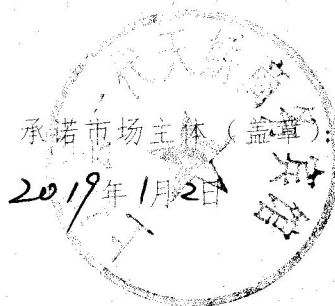 承诺市场主体（盖章）：
2019年1月2日
宾馆